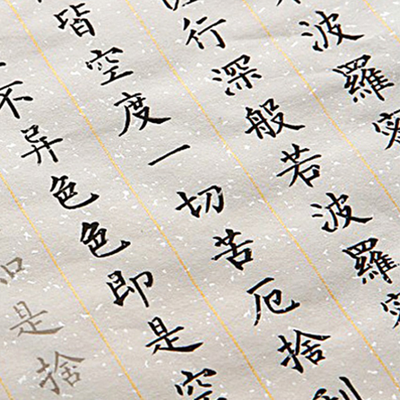 波羅
行深般若波羅
皆空度一切苦厄捨
不异色色即是空
是捨